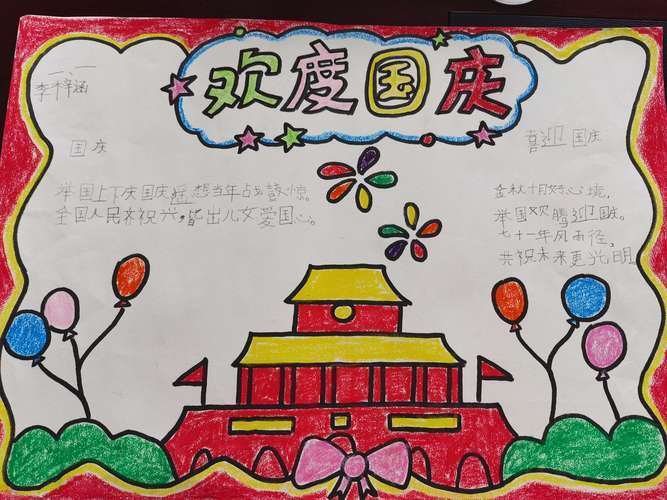 欢度国庆
一、一
李梓涵
国庆
举国上下庆国庆，想当年占鳌惊。
全国人民齐祝兴，皆出儿女爱国心。
喜迎国庆
金秋十月好心境，
举国欢腾迎国庆。
七十一年风雨径，
共祝未来更光明